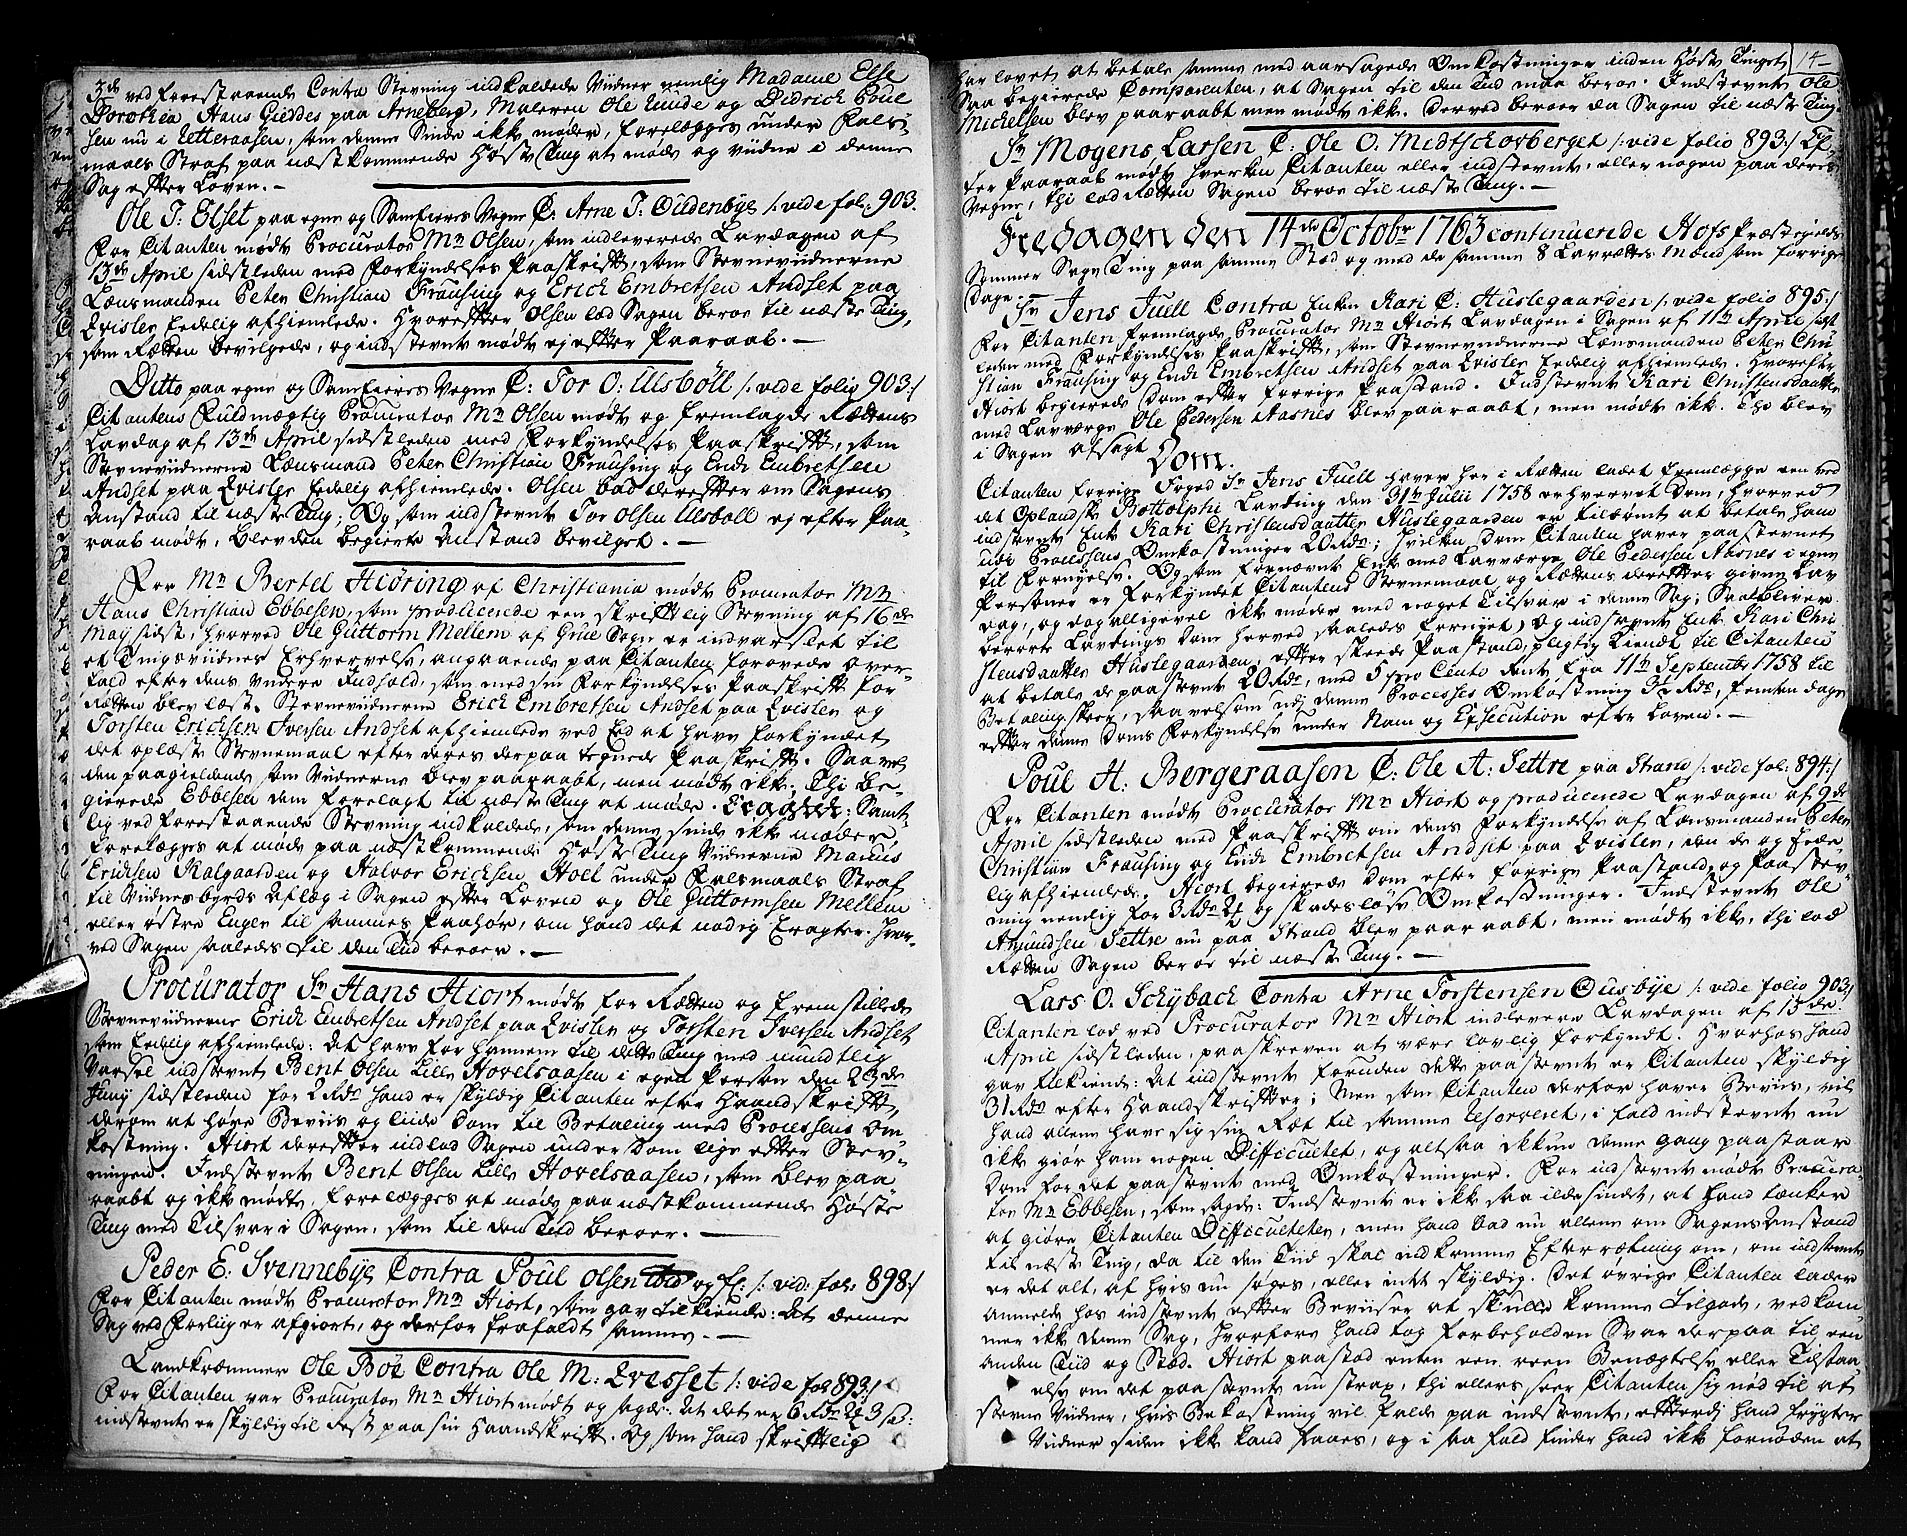 3de ved forestaaende Contra Stevning indkaldede Vidner nemlig Madame Else
Dorothea Hans Gieddes paa Arneberg, Maleren Ole Lunde og Didrich Poul
sen nu i Letteraasen, som denne Sinde ikke møder, forelægges under Fals-
maals Straf paa næstkommende Høste Ting at møde og vidne i denne
Sag efter Loven. —
Ole J: Elset paa egne og Samfieres Vegne C: Arne J: Oudenbye /: vide fol: 903.
For Citanten mødte Procurator Mr Olsen, som indleverede Lavdagen af
13de April sidstleden med Forkyndelses Paaskrift, som Stevnevidnerne
Lænsmanden Peter Christian Frausing og Erich Embretsen Andset paa
Qvislen Eedelig afhiemlede. Hvorefter Olsen lod Sagen beroe til næste Ting,
som Rætten bevilgede, og indstevnte mødte ej efter Paaraab. —
Ditto paa egne og Samfieres Vegne C: Tor O: Ulsböll /: vide folio 903:/
Citantens Fuldmægtig Procurator Mr Olsen mødte og fremlagde Rættens
Lavdag af 13de April sidstleden med Forkyndelses Paaskrift, som
Stevnevidnerne Lænsmand Peter Christian Frausing og Erich Embretsen
Andset paa Qvislen Eedelig afhiemlede. Olsen bad derefter om Sagens
Anstand til næste Ting; Og som indstevnte Tor Olsen Ulsböll ej efter Paa-
raab mødte, blev den begierte Anstand bevilget. —
For Mr Bertel Hiöring af Christiania mødte Procurator Mr
Hans Christian Ebbesen, som producerede een skriftlig Stevning af 16de
May sidst, hvorved Ole Guttorm Mellem af Grue Sogn er indvarslet til
et Tingsvidnes Erhvervelse, angaaende paa Citanten forøvede Over-
fald efter dens videre Indhold, som med sin Forkyndelses Paaskrift for
Rætten blev læst. Stevnevidnerne Erich Embretsen Andset paa Qvislen og
Torsten Erichsen Iversen Andset afhiemlede ved Eed at have forkyndet
det oplæste Stevnemaal efter deres derpaa tegnede Paaskrift. Saavel
den paagieldende som Vidnerne blev paaraabt, men mødte ikke. Thi be-
gierede Ebbesen dem forelagt til næste Ting at møde. Eragtet: Samt-
lig ved forestaaende Stevning indkaldede, som denne sinde ikke møder,
forelægges at møde paa næstkommende Høste Ting Vidnerne Marcus
Erichsen Kalgaarden og Halvor Erichsen Hoel under Falsmaals Straf
til Vidnesbyrds Aflæg i Sagen efter Loven og Ole Guttormsen Mellem
eller østre Enger til sammes Paahør, om hand det nødig Eragter. hvor-
ved Sagen saaledes til den Tiid beroer. —
Procurator Sr Hans Hiort mødte for Rætten og fremstillede
Stevnevidnerne Erich Embretsen Andset paa Qvislen og Torsten Iversen Andset
som Eedelig afhiemlede: At have for hannem til dette Ting med mundtlig
Varsel indstevnt Bent Olsen Lille Hovelsaasen i egen Person den 29de
Juny sidstleden for 2 Rdr hand er skyldig Citanten efter Haandskrift,
derom at høre Beviis og lide Dom til Betaling med Processens Om
kostning. Hiort derefter indlod Sagen under Dom lige efter Stev-
ningen. Indstevnte Bent Olsen Lille Hovelsaasen, som blev paa
raabt og ikke mødte, forelægges at møde paa næstkommende Høste
Ting med Tilsvar i Sagen, som til den Tiid beroer. —
Peder E: Svennebye Contra Poul Olsen og fl: /: vid: fol: 898:/
For Citanten mødte Procurator Mr Hiort, som gav tilkiende: At denne
Sag ved Forliig er afgiort, og derfor frafaldt samme. —
Landkræmmer Ole Böe Contra Ole M: Qvesset /: vide fol 893:/
For Citanten var Procurator Mr Hiort mødt og sagde: At det er 6 Rdr 2 ß
indstevnte er skyldig til Rest paa sin Haandskrift. Og som hand skriftlig
14
har lovet at betale samme med aarsagede Omkostninger inden Høste Tinget
Saa begierede Comparenten, at Sagen til den Tiid maa beroe. Indstevnte Ole
Michelsen blev paaraabt men mødte ikke. Derved beroer da Sagen til næste Ting
Sr Mogens Larsen C: Ole O. Medtschovberget /: vide folio 893:/ Ef-
ter Paaraab mødte hverken Citanten eller indstevnte, eller nogen paa deres
Vegne, thi lod Rætten Sagen beroe til næste Ting. —
Fredagen den 14de Octobr 1763 continuerede Hofs Præstegields
Sommer Sage Ting paa samme Stæd og med de samme 8 Lavrættes Mænd som forrige
Dage.
Sr Jens Juell Contra Enken Kari C: Huslegaarden /: vide folio 895:/
For Citanten fremlagde Procurator Mr Hiort Lavdagen i Sagen af 11te April sidst
leden med Forkyndelses Paaskrift, som Stevnevidnerne Lænsmanden Peter Chri
stian Frausing og Erich Embretsen Andset paa Qvislen Eedelig afhiemlede. Hvorefter
Hiort begierede Dom efter forrige Paastand. Indstevnte Kari Christensdaatter
med Lavværge Ole Pedersen Aasnes blev paaraabt, men mødte ikke. Thi blev
i Sagen afsagt
Dom.
Citanten forrige Foged Sr Jens Juell haver her i Rætten ladet fremlægge een ved
det Oplandske Bottolphi Lavting den 31te Julii 1758 erhvervet Dom, hvorved
indstevnte Enke Kari Christensdaatter Huslegaarden er tildømt at betale ham
udi Processens Omkostninger 20 Rdr; hvilken Dom Citanten haver paastevnet
til Fornyelse. Og som fornævnte Enke med Lavværge Ole Pedersen Aasnes i egne
Personer er forkyndet Citantens Stevnemaal og Rættens derefter givne Lav
dag, og dog alligevel ikke møder med noget Tilsvar i denne Sag; Saa bliver
berørte Lavtings Dom herved saaledes fornyet, Og indstevnte Enke Kari Chri
stensdaatter Huslegaarden, efter skeede Paastand, pligtig kiendt til Citanten
at betale de paastevnte 20 Rdr, med 5 pro Cento Rente fra 11te September 1758 til
Betaling skeer, saavelsom udi denne Processes Omkostning 3 Rdr, femten dage
efter denne Doms Forkyndelse under Nam og Execution efter Loven. —
Poul H: Bergeraasen C: Ole A: Settre paa Strand /: vide fol: 894:/
For Citanten mødte Procurator Mr Hiort og producerede Lavdagen af 9de
April sidstleden med Paaskrift om dens Forkyndelse af Lænsmanden Peter
Christian Frausing og Erich Embretsen Andset paa Qvislen, den de og Eede-
lig afhiemlede. Hiort begierede Dom efter forrige Paastand og Paastev-
ning nemlig for 3 Rdr og skadesløse Omkostninger. Indstevnte Ole
Amundsen Settre nu paa Strand blev paaraabt, men mødte ikke, thi lod
Rætten Sagen beroe til næste Ting. —
Lars O. Schybach Contra Arne Torstensen Ousbye /: vide folio 903:/
Citanten lod ved Procurator Mr Hiort indlevere Lavdagen af 13de
April sidstleden, paaskreven at være lovlig forkyndt. Hvorhos hand
gav tilkiende: At indstevnte foruden dette paastevnte er Citanten skyldig
31 Rdr efter Haandskrifter; Men som Citanten derfor haver Beviis, vil
hand allene have sig sin Ræt til samme reserveret, i fald indstevnte nu
ikke giør ham nogen Difficultet, og altsaa ikkun denne gang paastaar
Dom for det paastevnte med Omkostninger. For indstevnte mødte Procura
tor Mr Ebbesen, som sagde: Indstevnte er ikke saa ilde sindet, at hand tænker
at giøre Citanten Difficulteter, men hand bad nu allene om Sagens Anstand
til næste Ting, da til den Tiid skal indkomme Efterrætning om, om indstevnte
er det alt, af hvis nu søges, eller intet skyldig. Det øvrige Citanten lader
anmelde hos indstevnte efter Beviiser at skulde komme tilgode, vedkom
mer ikke denne Sag, hvorfore hand tog forbeholden Svar derpaa til een
anden Tiid og Stæd. Hiort paastod enten een reen Benægtelse eller Tilstaa
else om det paastevnte nu strax, thi ellers seer Citanten sig nød til at
stevne Vidner, hvis Bekostning vil falde paa indstevnte, efterdj hand frygter
Vidner siden ikke kand faaes, og i saa fald finder hand ikke fornøden at